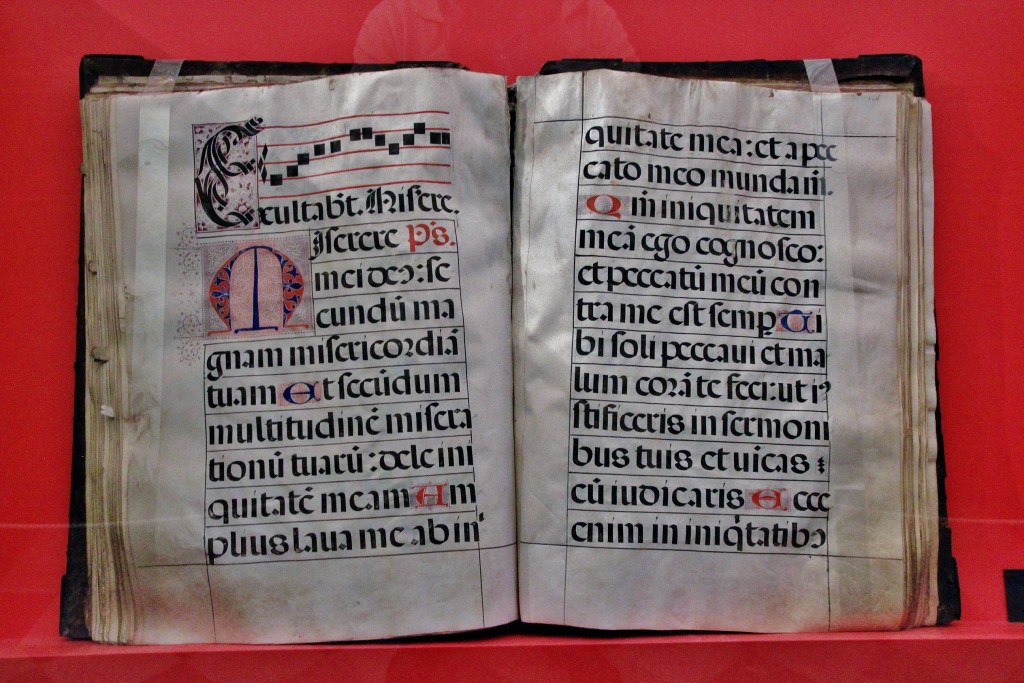 Exultab̃t. Misere.
Miserere Ps̃.
mei deꝰ: se
cundũ ma
gnam misericordiã
tuam Et secũdum
multitudinẽ misera
tionũ tuarũ: dele ini
quitatẽ meam Am
plius laua me ab in
quitate mea: et a pec
cato meo munda m̃.
Qm̃ iniquitatem
meã ego cognosco:
et peccatũ meũ con
tra me est semꝑ Ti
bi soli peccaui et ma
lum corã te feci: ut iꝰ
stificeris in sermoni
bus tuis et uicas
cũ iudicaris Ecce
enim in iniq̃tatibꝰ